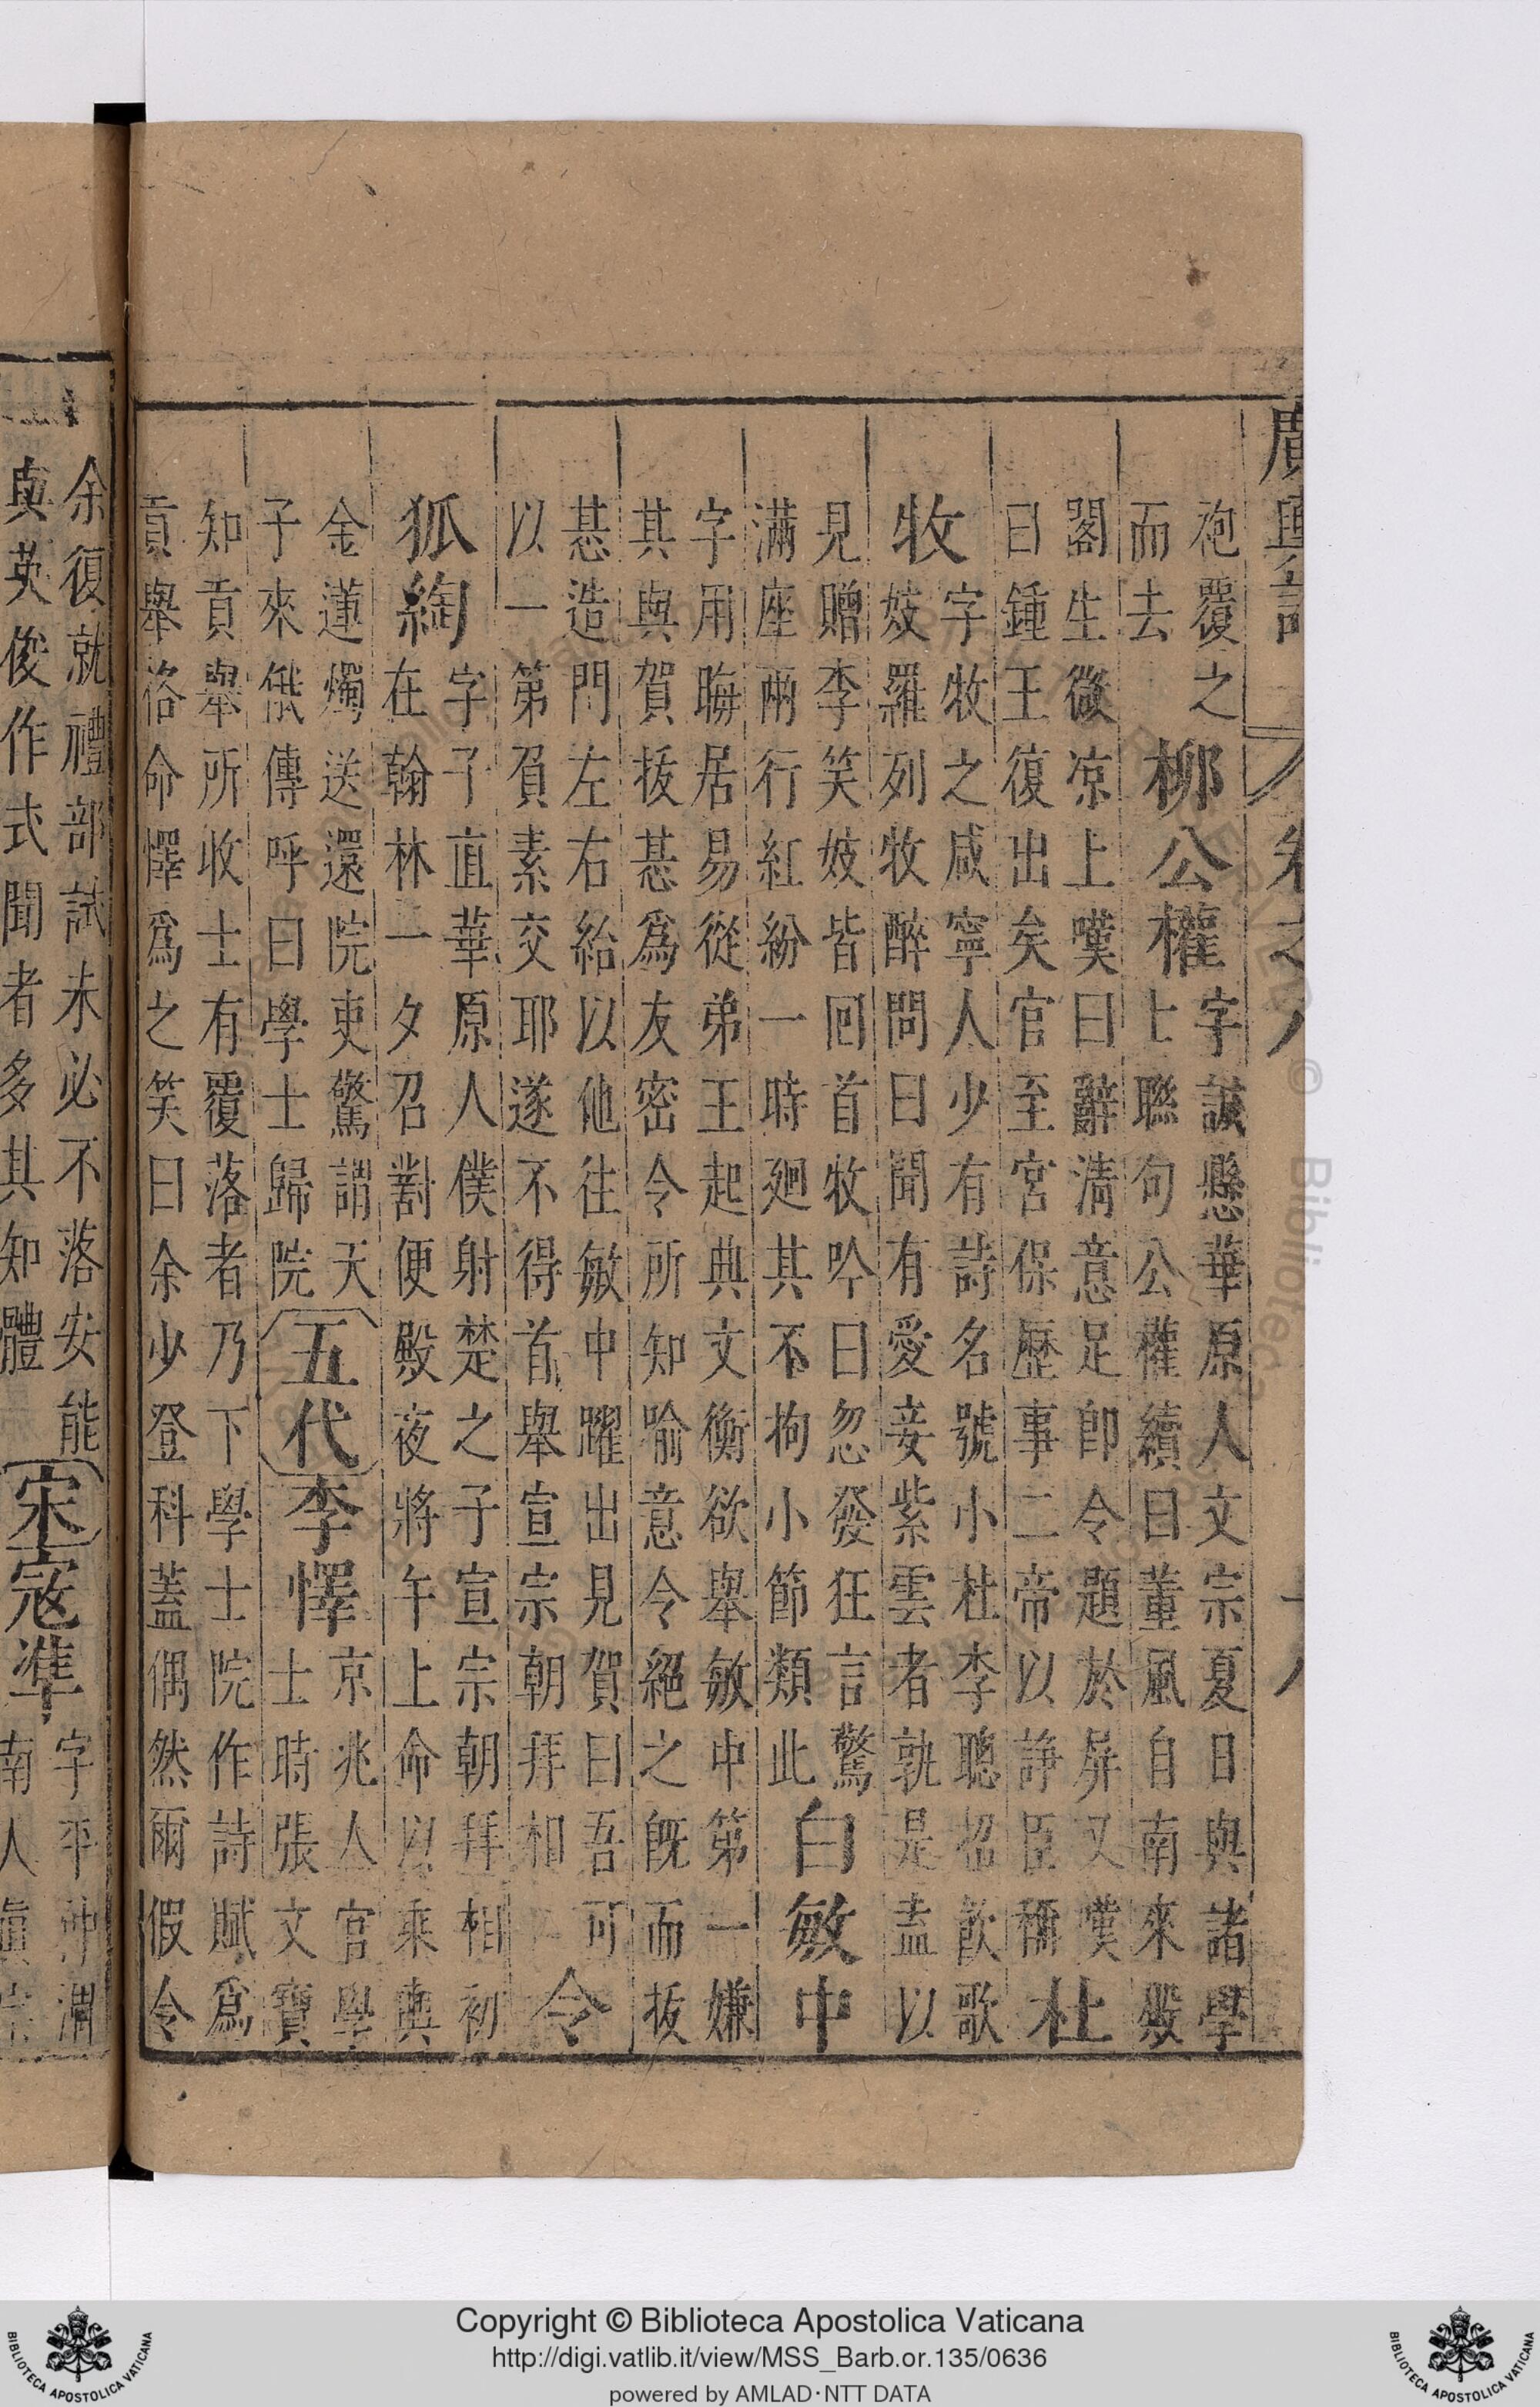 廣輿記 卷之八 十八
袍覆之
而去
柳公權
字誠懸華原人文宗夏日與諸學
士聯句公權續曰薰風自南來殿
閣生微凉上嘆曰辭淸意足卽令題於屏又嘆
曰鍾王復出矣官至宮保歷事二帝以諍臣稱
杜
牧
字牧之咸寧人少有詩名號小杜李聰招飮歌
妓羅列牧醉問曰聞有愛妾紫雲者孰是盍以
見贈李笑妓皆回首牧吟曰忽發狂言驚
滿座兩行紅紛一時廻其不拘小節類此
白敏中
字用晦居易從弟王起典文衡欲舉敏中第一嫌
其與賀拔惎爲友密令所知喻意令絕之旣而拔
惎造門左右紿以他往敏中躍出見賀曰吾可
以一第負素交耶遂不得首舉宣宗朝拜相
令
狐綯
字子直華原人僕射楚之子宣宗朝拜相初
在翰林一夕召對便殿夜將午上命以乘輿
金蓮燭送還院吏驚謂天
子來俄傳呼曰學士歸院
五代
李懌
京兆人官學
士時張文寶
知貢舉所收士有覆落者乃下學士院作詩賦爲
貢舉格命懌爲之笑曰余少登科蓋偶然爾假令
余復就禮部試未必不落安能
與英俊作式聞者多其知體
宋
寇準
字平仲渭
南人眞宗
Copyright © Biblioteca Apostolica Vaticana
http://digi.vatlib.it/view/MSS_Barb.or.135/0636
powered by AMLAD·NTT DATA
BIBLIOTECA APOSTOLICA VATICANA
BIBLIOTECA APOSTOLICA VATICANA